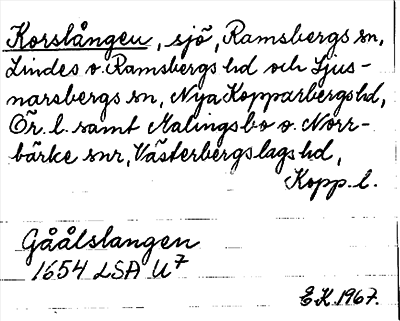 Korslången, sjö, Ramsbergs sn,
Lindes o. Ramsbergs hd och Ljus-
narsbergs sn, Nya Kopparbergs hd,
Ör. l. samt Malingsbo o. Norr-
bärke snr, Västerbergslags hd,
Kopp. l.
Gåålslangen
1654 LSA U7
E.K. 1967.